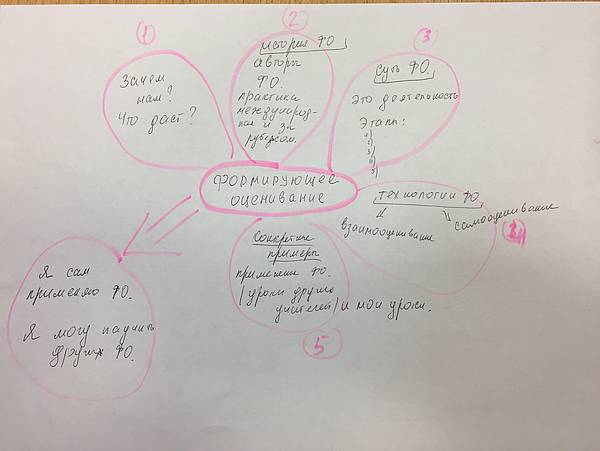 1
Зачем
нам?
Что даст?
2
история ФО
авторы
ФО.
практика
международ-
ная и за
рубежом.
3
суть ФО.
Это деятельность
Этапы:
1)
2)
3)
4)
5)
ФОРМИРУЮЩЕЕ
ОЦЕНИВАНИЕ
технологии ФО.
взаимооценивание
самооценивание
4
Конкретные
примеры
применения ФО.
(уроки других
учителей) и мои уроки.
5
Я сам
применяю ФО.
Я могу научить
других ФО.